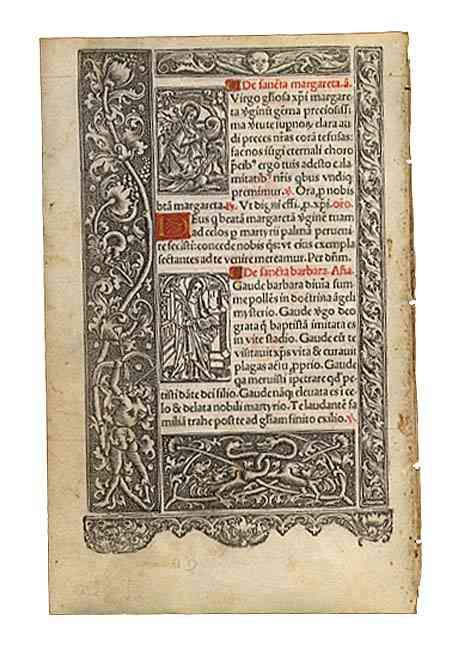 De sancta margareta. ã.
Virgo gliosa xpi margare
ta v̾ginũ gẽma preciosissi
ma v̾tute supnoɿ clara au
di preces nr̃as corã te fusas:
fac nos iũgi eternali choro
p̃cib᾽ ergo tuis adesto cala
mitatib᾽ nr̃is qbus vndiq
premimur. ℣. Ora p nobis
btã margareta. ℟. Vt digni effi. p. xpi. oro.
Deus q beatã margaretã v̾ginẽ tuam
ad celos p martyrii palmã perueni
re fecisti: concede nobis qs: vt eius exempla
sectantes ad te venire mereamur. Per dñm.
De sancta barbara. Aña.
Gaude barbara diuĩa sum
me pollẽs in doctrina ãgeli
mysterio. Gaude v̾go deo
grata q baptistã imitata es
in vite stadio. Gaude cũ te
visitauit xps vita & curauit
plagas actu pprio. Gaude
qa meruisti ipetrare qd pe
tisti dãte dei filio. Gaude nãq eleuata es i ce
lo & delata nobili martyrio. Te laudantẽ fa
miliã trahe post te ad gliam finito exilio. ℣.